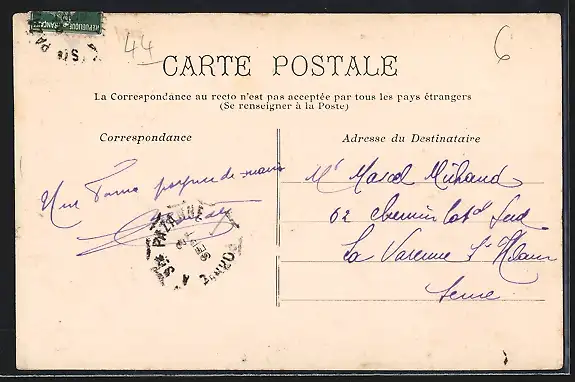 RÉPUBLIQUE FRANÇAISE
44
6
CARTE POSTALE
La Correspondance au recto n'est pas acceptée par tous les pays étrangers
(Se renseigner à la Poste)
Correspondance
Adresse du Destinataire
Une bonne poignée de main
Mr Marcel Michaud
62 chemin Sud
La Varenne St Hilaire
Seine
PAZANNE